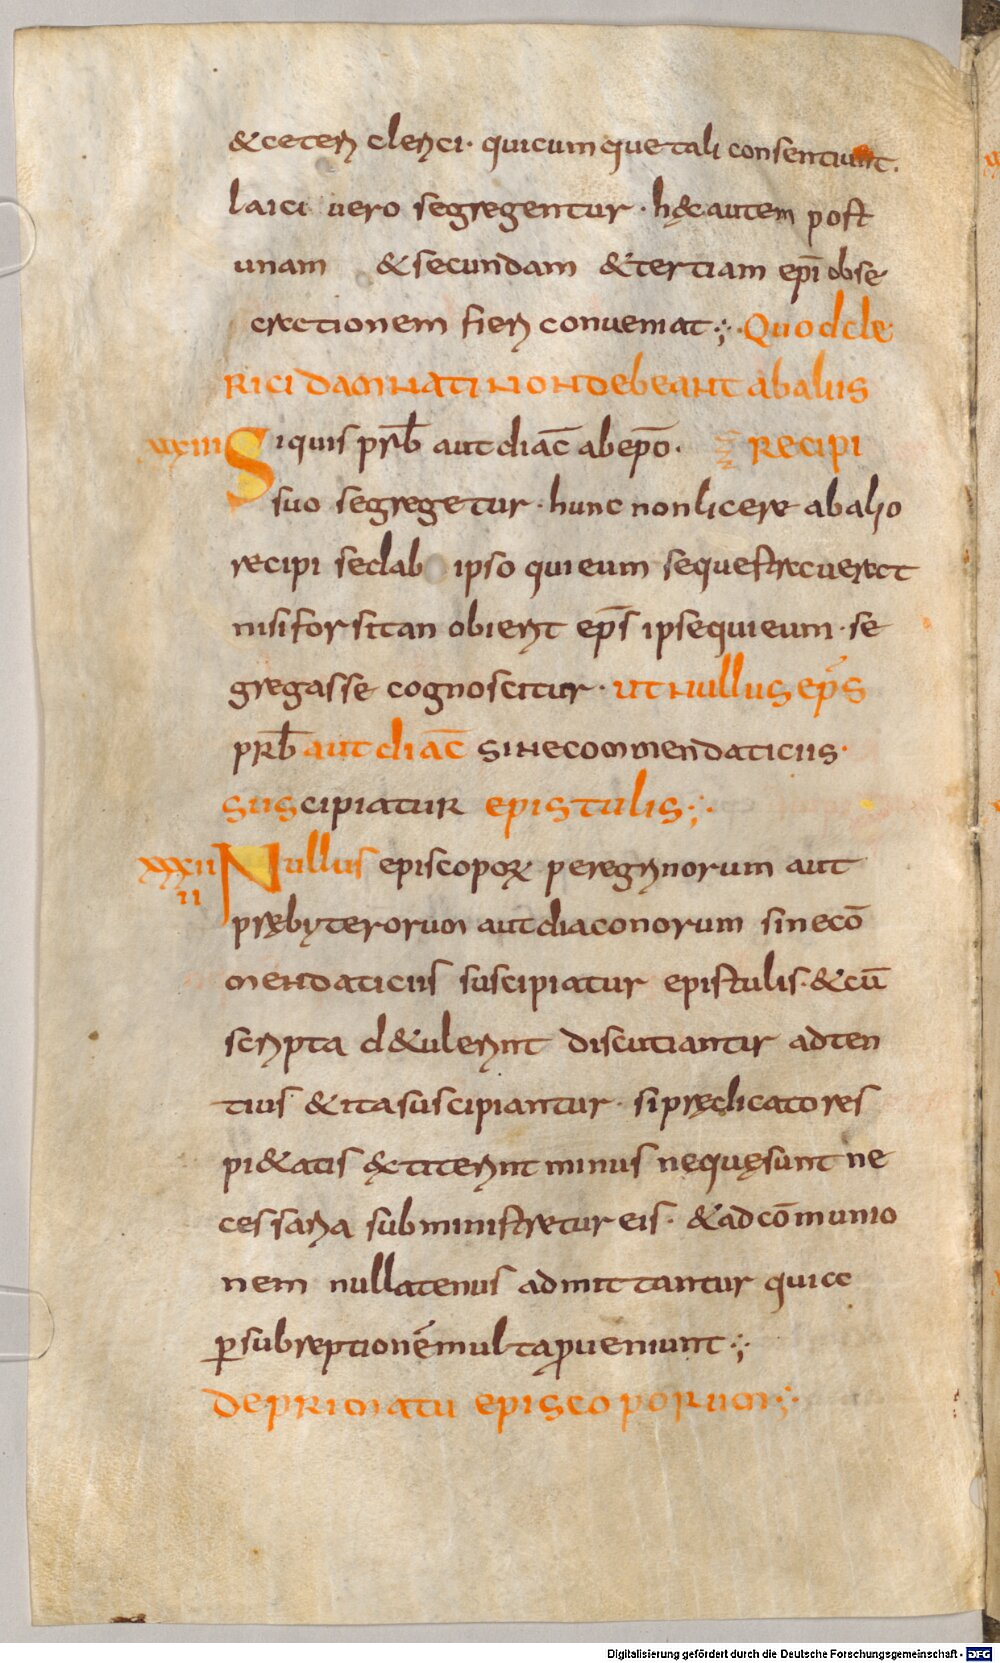 &ceteri clerici· quicumque tali consentiunt.
laici uero segregentur· hęc autem post
unam & secundam & tertiam ep̄i obse
crationem fieri conueniat ;· Quod cle
RICI DAMNATI NON DEBEANT ab aliis
xxxiii Siquis prb̄ aut diac̄ ab ep̄o. RECIPI
suo segregetur· hunc non licere ab alio
recipi sed ab ipso qui eum sequestrauerat
nisi forsitan obierit ep̄s ipse qui eum· se
gregasse cognoscitur· ut nullus ep̄s
prb̄ aut diac̄ sine commendaticiis·
suscipiatur epistulis ;·
xxxiiii Nullus episcoporꝝ peregrinorum aut
pręsbyterorum aut diaconorum sine cō
mendaticiis suscipiatur epistulis· & cū
scripta d&ulerint discutiantur adten
tius & ita suscipiantur· si prędicatores
pi&atis extiterint minus nequęsunt ne
cessaria subministretur eis· & ad cōmunio
nem nullatenus admittantur quia
ꝑ subreptionē multa ꝓueniunt ;·
DE PRIMATU EPISCOPORUM ;·
Digitalisierung gefördert durch die Deutsche Forschungsgemeinschaft - DFG